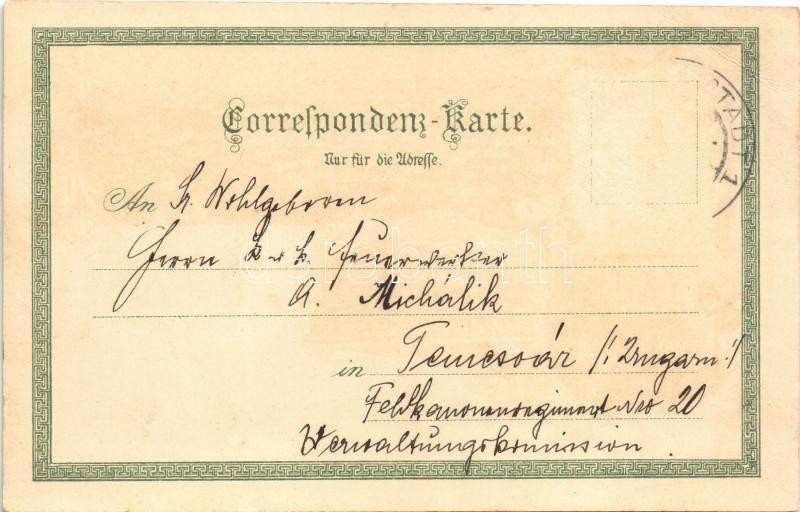 Correspondenz-Karte.
Nur für die Adresse.
STADT 1
An Sr. Wohlgeboren
Herrn k u k. Feuerwerker
A. Michálik
in Temesvár /: Ungarn :/
Feldkanonenregiment Nro 20
Verwaltungskommission
darabanth